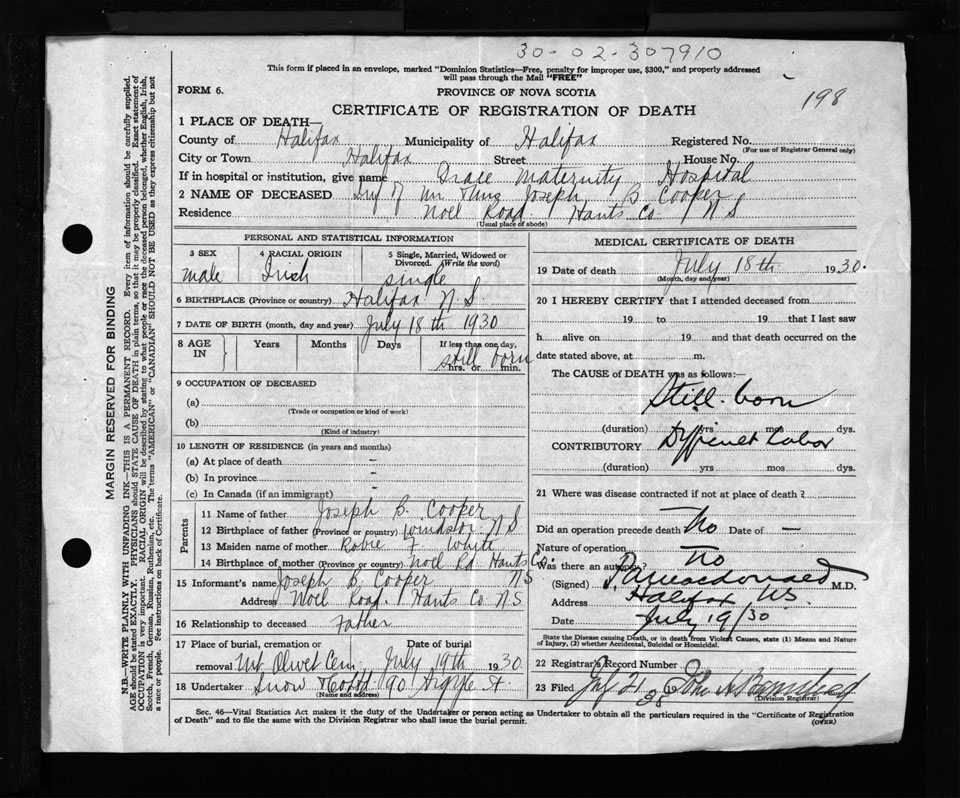 30-02-307910
This form if placed in an envelope, marked "Dominion Statistics—Free, penalty for improper use, $300," and properly addressed
will pass through the Mail "FREE"
FORM 6.
PROVINCE OF NOVA SCOTIA
198
CERTIFICATE OF REGISTRATION OF DEATH
1 PLACE OF DEATH—
County of Halifax Municipality of Halifax Registered No.
(For use of Registrar General only)
City or Town Halifax Street House No.
If in hospital or institution, give name Grace Maternity Hospital
2 NAME OF DECEASED Inf of Mr & Mrs Joseph B Cooper
Residence Noel Road Hants Co N S
(Usual place of abode)
PERSONAL AND STATISTICAL INFORMATION
3 SEX 4 RACIAL ORIGIN 5 Single, Married, Widowed or
Divorced. (Write the word)
male Irish single
6 BIRTHPLACE (Province or country) Halifax N.S.
7 DATE OF BIRTH (month, day and year) July 18th 1930
8 AGE IN Years Months Days If less than one day,
still born
hrs. or min.
9 OCCUPATION OF DECEASED
(a)
(Trade or occupation or kind of work)
(b)
(Kind of industry)
10 LENGTH OF RESIDENCE (in years and months)
(a) At place of death -
(b) In province -
(c) In Canada (if an immigrant) -
Parents
11 Name of father Joseph B. Cooper
12 Birthplace of father (Province or country) Windsor N S
13 Maiden name of mother Robie F White
14 Birthplace of mother (Province or country) Noel Rd Hants Co. N S
15 Informant's name Joseph B. Cooper
Address Noel Road. Hants Co N S
16 Relationship to deceased Father
17 Place of burial, cremation or Date of burial
removal Mt Olivet Cem. July 19th 1930.
18 Undertaker Snow & Co Ltd 90 Argyle St
(Name and address)
MEDICAL CERTIFICATE OF DEATH
19 Date of death July 18th 1930.
(Month, day and year)
20 I HEREBY CERTIFY that I attended deceased from
19 to 19 that I last saw
h alive on 19 and that death occurred on the
date stated above, at m.
The CAUSE of DEATH was as follows:—
Still-born
(duration) yrs mos dys.
CONTRIBUTORY Difficult Labor
(duration) yrs mos dys.
21 Where was disease contracted if not at place of death?
—
Did an operation precede death No Date of —
Nature of operation —
Was there an autopsy? No
(Signed) Macdonald M.D.
Address Halifax N.S.
Date July 19/30
State the Disease causing Death, or in death from Violent Causes, state (1) Means and Nature
of Injury, (2) whether Accidental, Suicidal or Homicidal.
22 Registrar's Record Number
23 Filed July 21 19
(Division Registrar)
Sec. 46—Vital Statistics Act makes it the duty of the Undertaker or person acting as Undertaker to obtain all the particulars required in the "Certificate of Registration
of Death" and to file the same with the Division Registrar who shall issue the burial permit.
(OVER)
MARGIN RESERVED FOR BINDING
N.B.—WRITE PLAINLY WITH UNFADING INK—THIS IS A PERMANENT RECORD. Every item of information should be carefully supplied.
AGE should be stated EXACTLY. PHYSICIANS should STATE CAUSE OF DEATH in plain terms, so that it may be properly classified. Exact statement of
OCCUPATION is very important. RACIAL ORIGIN will be described by stating to what people or race the deceased person belonged, whether English, Irish,
Scotch, French, German, Russian, Ruthenian, etc. The terms "AMERICAN" or "CANADIAN" SHOULD NOT BE USED as they express citizenship but not
a race or people. See instructions on back of Certificate.